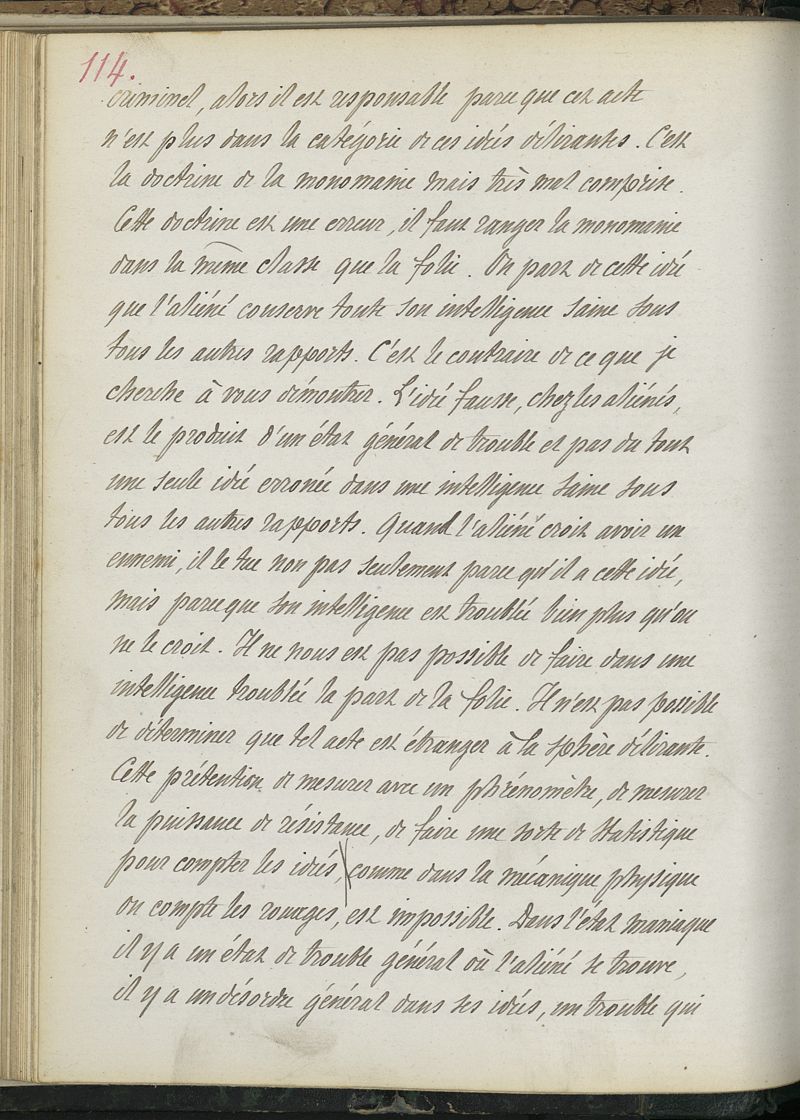 114.
criminel, alors il est responsable parce que cet acte
n'est plus dans la catégorie de ces idées délirantes. C'est
la doctrine de la monomanie mais très mal comprise.
Cette doctrine est une erreur, il faut ranger la monomanie
dans la même classe que la folie. On part de cette idée
que l'aliéné conserve toute son intelligence saine sous
tous les autres rapports. C'est le contraire de ce que je
cherche à vous démontrer. L'idée fausse, chez les aliénés,
est le produit d'un état général de trouble et pas du tout
une seule idée erronée dans une intelligence saine sous
tous les autres rapports. Quand l'aliéné croit avoir un
ennemi, il le tue non pas seulement parce qu'il a cette idée,
mais parce que son intelligence est troublée bien plus qu'on
ne le croit. Il ne nous est pas possible de faire dans une
intelligence troublée la part de la folie. Il n'est pas possible
de déterminer que tel acte est étranger à la sphère délirante.
Cette prétention de mesurer avec un phrénomètre, de mesurer
la puissance de résistance, de faire une sorte de statistique
pour compter les idées, comme dans la mécanique physique
on compte les rouages, est impossible. Dans l'état maniaque
il y a un état de trouble général où l'aliéné se trouve,
il y a un désordre général dans ses idées, un trouble qui